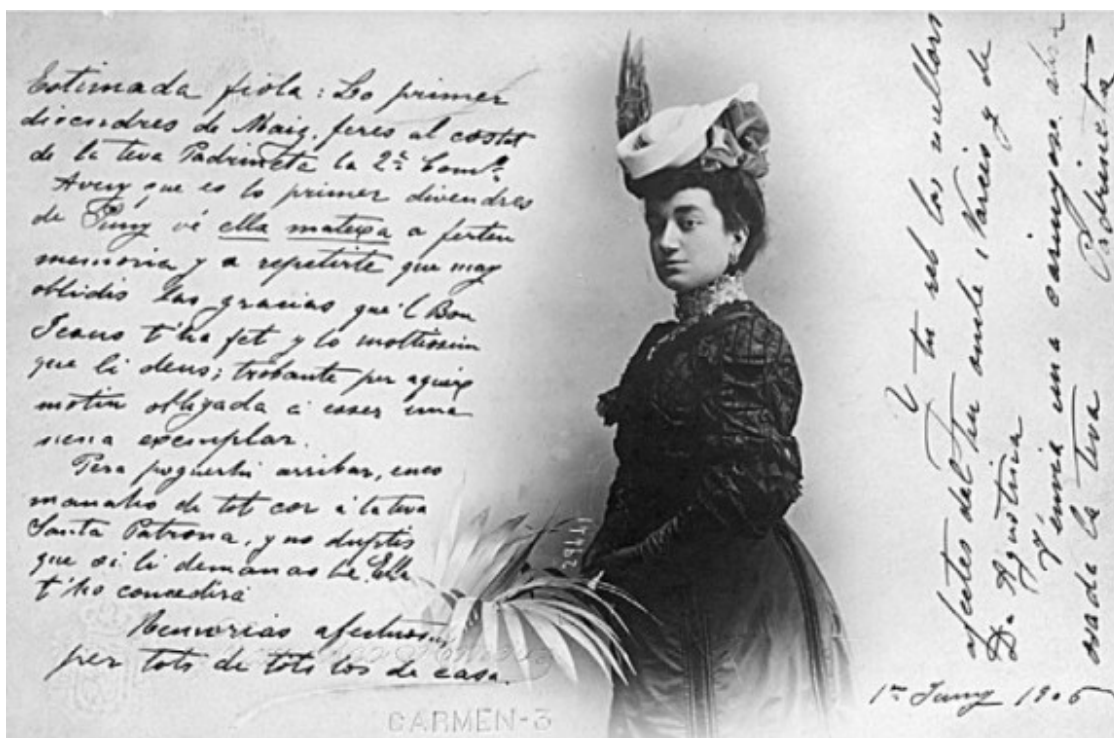 Estimada fiola: Lo primer
divendres de Maig, feres al costat
de la teva Padrineta la 2ª Comº
Avuy que es lo primer divendres
de Juny vé ella mateixa a ferten
memoria y a repetirte que may
oblidis las gracias que'l Bon
Jesus t'ha fet y lo moltissim
que li deus; trobante per aqueix
motiu obligada á esser una
nena exemplar.
Pera poguerhi arribar, enco
manaho de tot cor á la teva
Santa Patrona, y no duptis
que si li demanas bé, Ella
t'ho concedirá
Memorias afectuosas
per tots de tots los de casa.
Y tu reb los mullors
afectes del teu oncle Narcis y de
Dª Agustina
T'envia una carinyosa
la teva
Padrineta
1er Juny 1906
29141
CARMEN-3